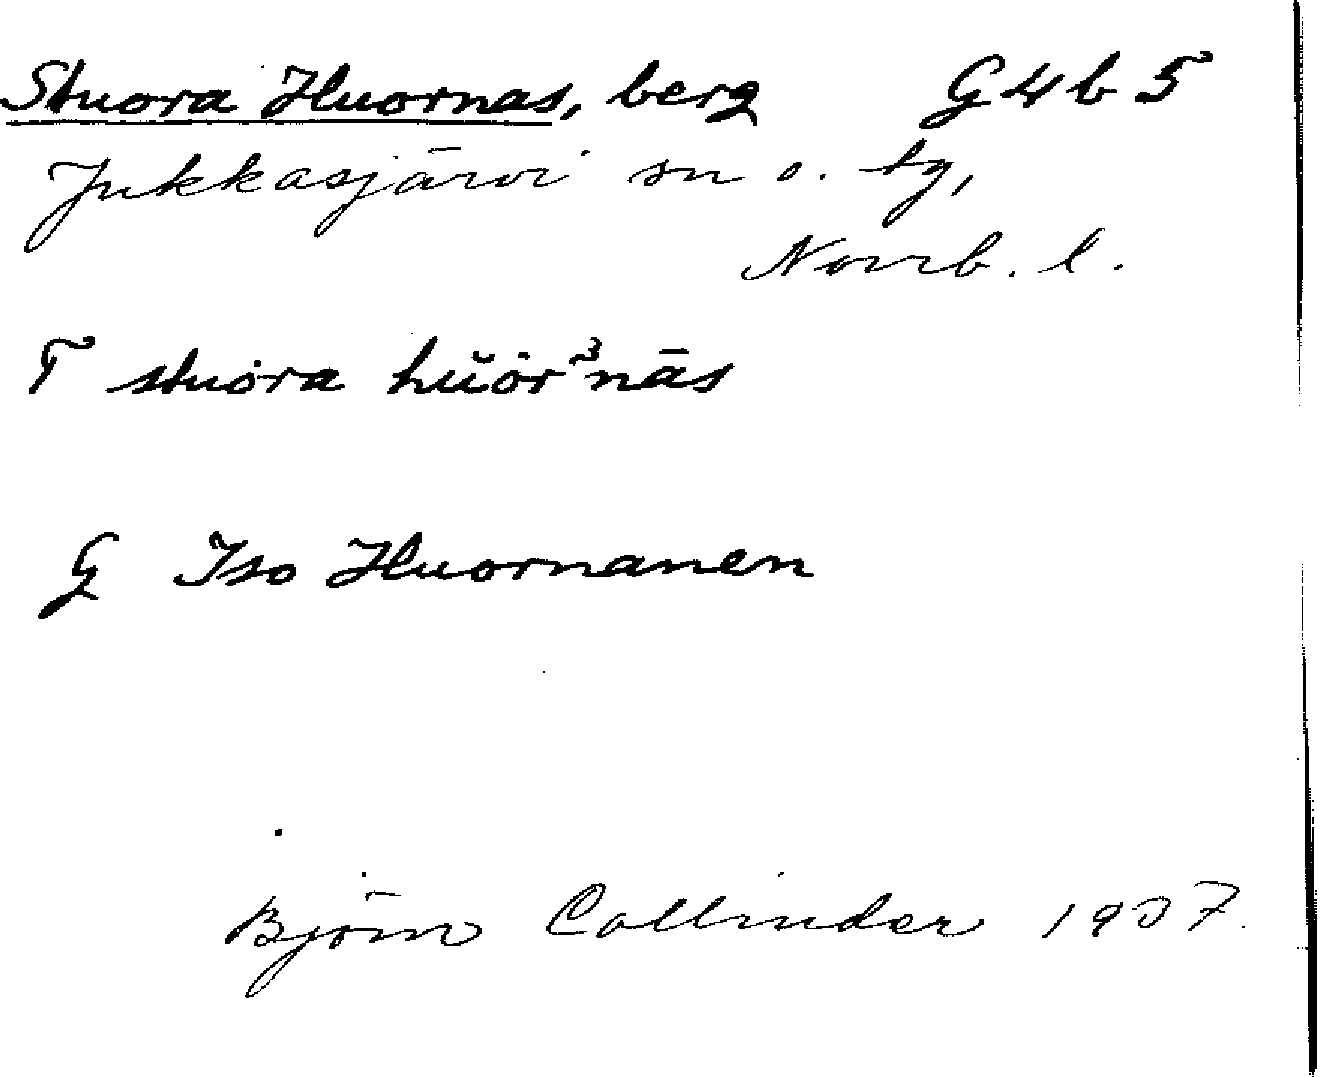 Stuora Huornas, berg G4b5
Jukkasjärvi sn o. tg,
Norrb. l.
T stuȯra hŭȯr³nās
G Iso Huornanen
Björn Collinder 1937